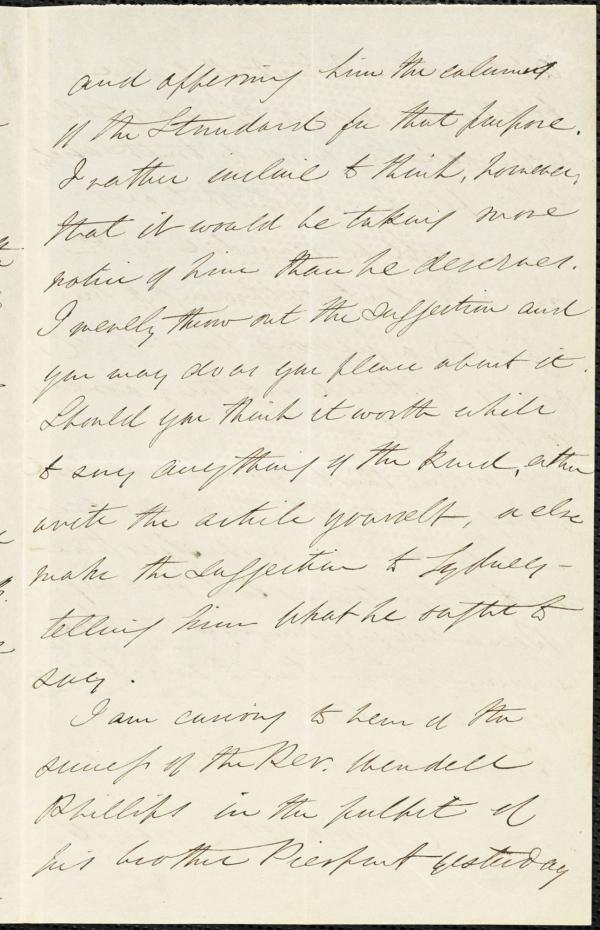 and offering him the columns
of the Standard for that purpose.
I rather incline to think, however,
that it would be taking more
notice of him than he deserves.
I merely throw out the suggestion and
you may do as you please about it.
Should you think it worth while
to say anything of the kind, either
write the article yourself, or else
make the suggestion to Sydney –
telling him what he ought to
say.
I am curious to hear of the
success of the Rev. Wendell
Phillips in the pulpit of
his brother Pierpont yesterday